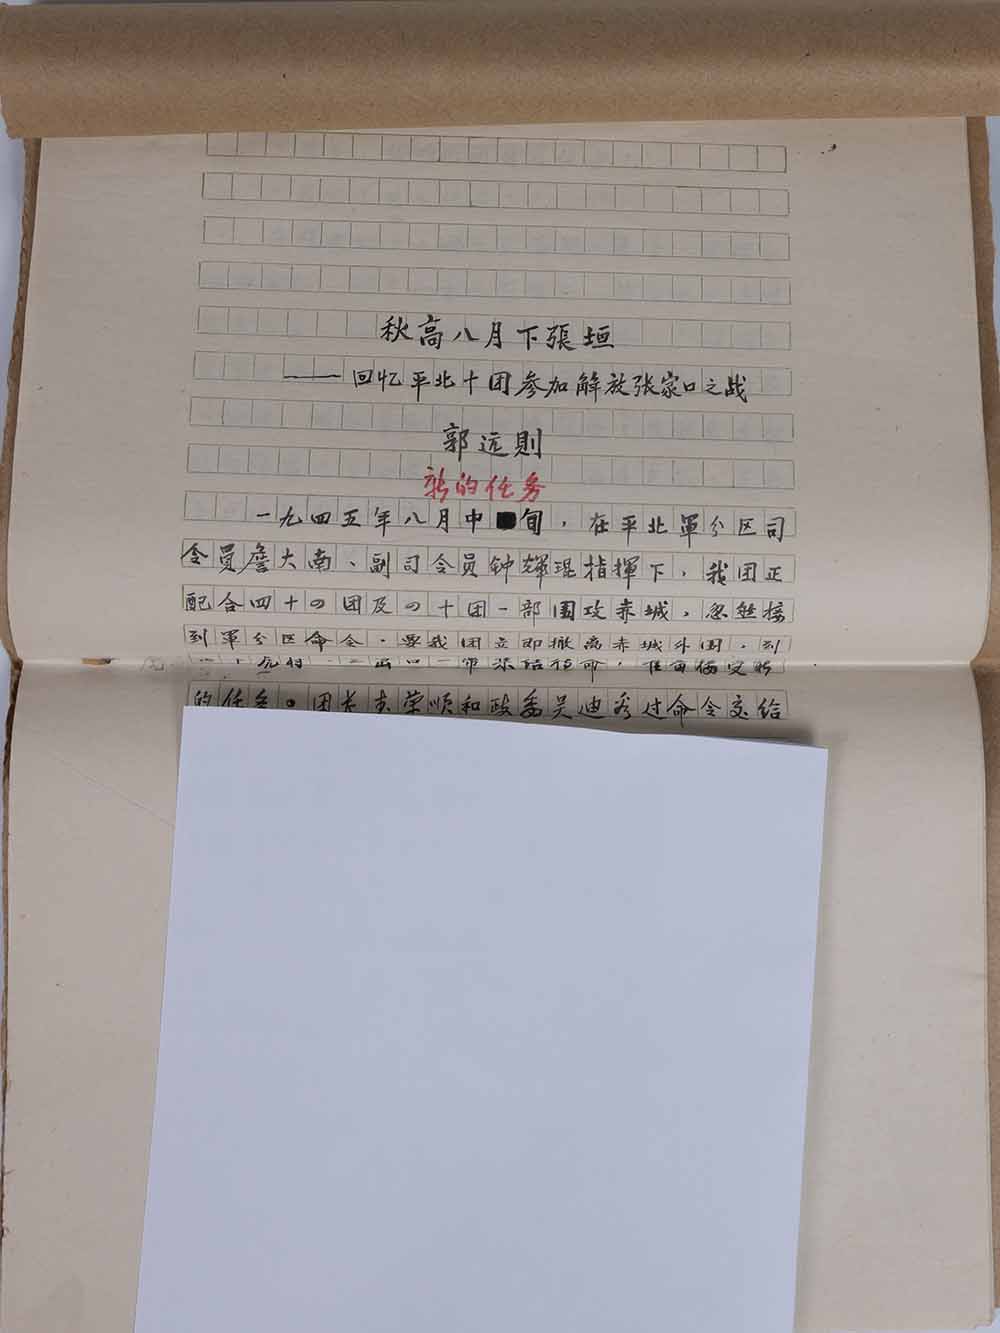 秋高八月下張垣
——回忆平北十团参加解放张家口之战
郭远則
新的任务
一九四五年八月中旬，在平北軍分区司
令员詹大南、副司令员钟輝琨指揮下，我团正
配合四十四团及四十团一部围攻赤城，忽然接
到軍分区命令，要我团立即撤离赤城外围，到
一带
的任务。团长李荣顺和政委吴迪
过命令交给